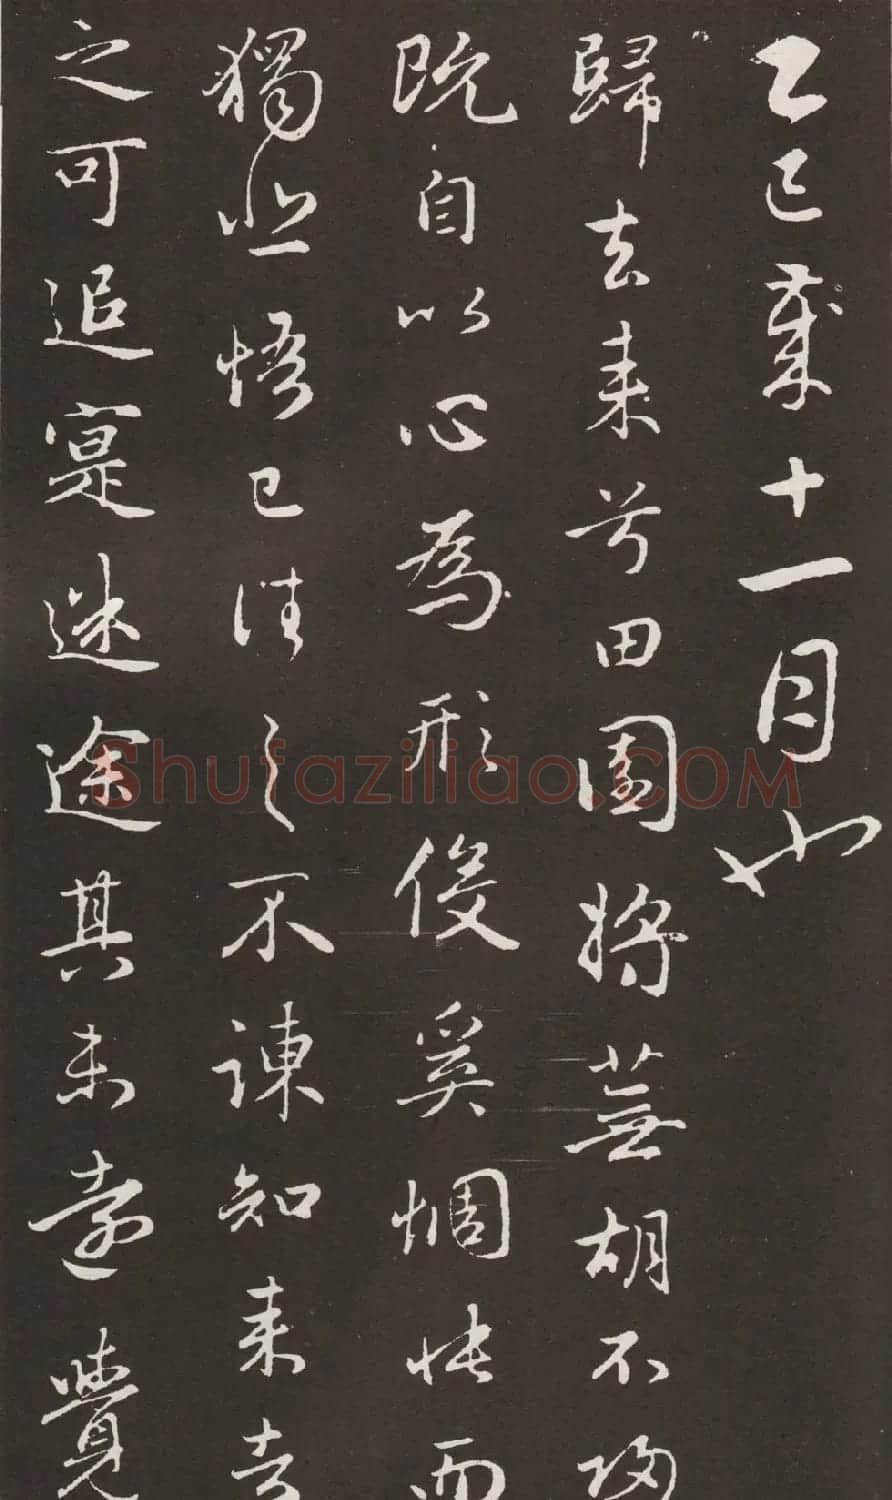 乙巳歲十一月也
歸去来兮田園將蕪胡不歸
既自以心為形役奚惆悵而
獨悲悟已往之不諫知来者
之可追寔迷途其未遠覺
Shufaziliao.COM